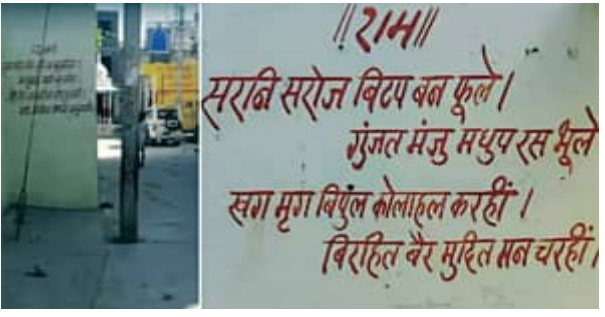 ॥राम॥
सरनि सरोज बिटप बन फूले।
गुंजत मंजु मधुप रस भूले
खग मृग बिपुल कोलाहल करहीं।
बिरहित बैर मुदित मन चरहीं।